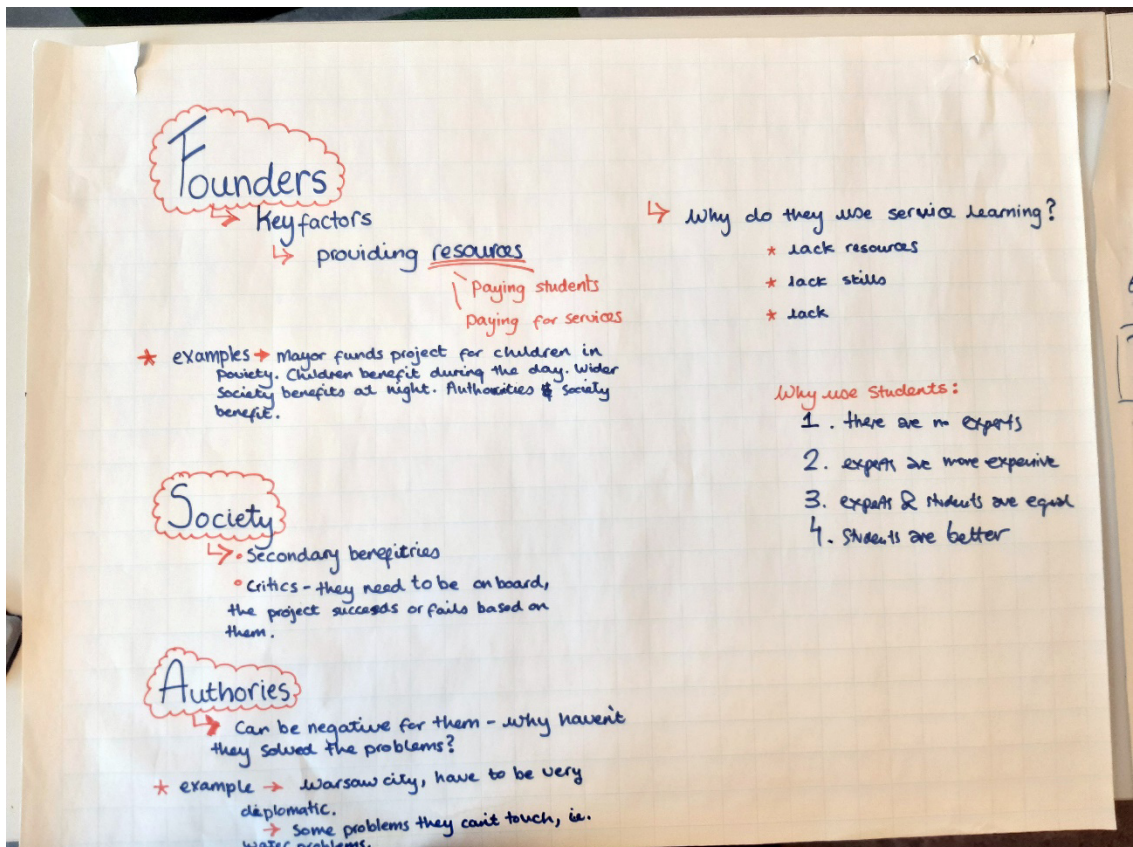 Founders
↳ Key factors
↳ providing resources
Paying students
Paying for services
* examples → Mayor funds project for children in
poviety. Children benefit during the day. Wider
society benefits at night. Authorities & society
benefit.
Society
↳ • Secondary benefitries
• Critics - they need to be on board,
the project succeeds or fails based on
them.
Authories
↳ Can be negative for them - why haven't
they solved the problems?
* example → Warsaw city, have to be very
diplomatic.
→ Some problems they can't touch, ie.
water problems.
↳ Why do they use service learning?
* lack resources
* lack skills
* lack
Why use Students:
1. there are no experts
2. experts are more expensive
3. experts & students are equal
4. Students are better